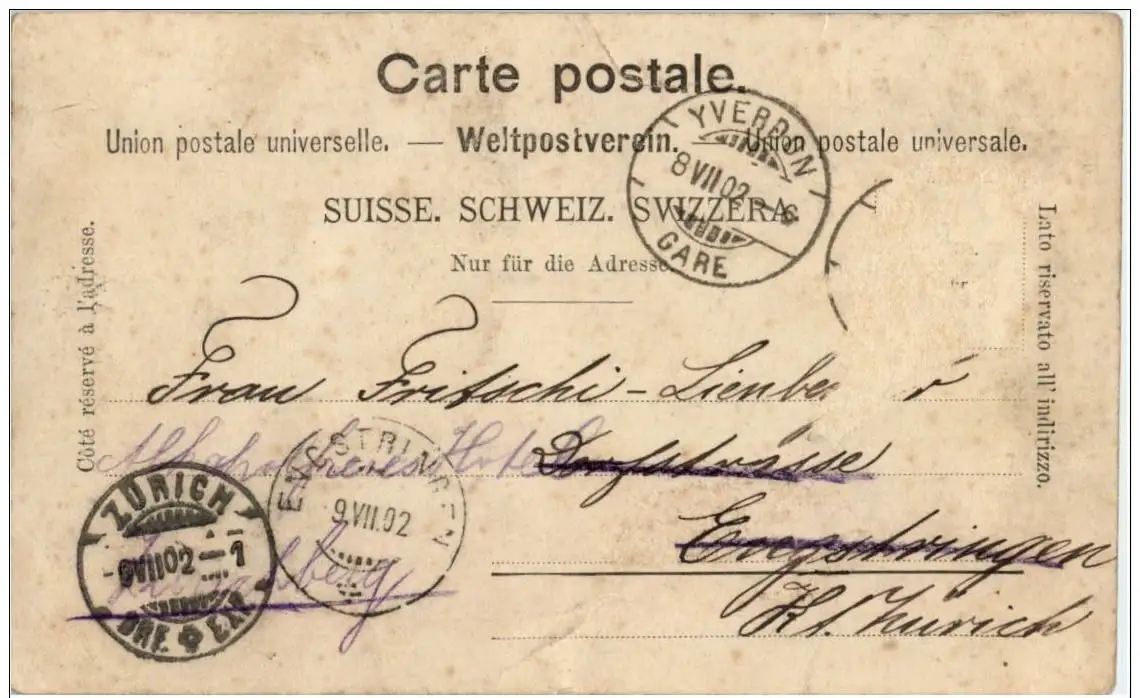 Carte postale.
Union postale universelle. — Weltpostverein. — Union postale universale.
SUISSE. SCHWEIZ. SVIZZERA.
Nur für die Adresse.
Côté réservé à l'adresse.
Lato riservato all' indirizzo.
YVERDON
8 VII 02
GARE
Frau Fritschi-Lienbe r
Hotel Dorfstrasse
Engstringen
Kt. Zürich
ENGSTRINGEN
9.VII.02
ZÜRICH
9 VII 02 — 1
BRF. EXP.